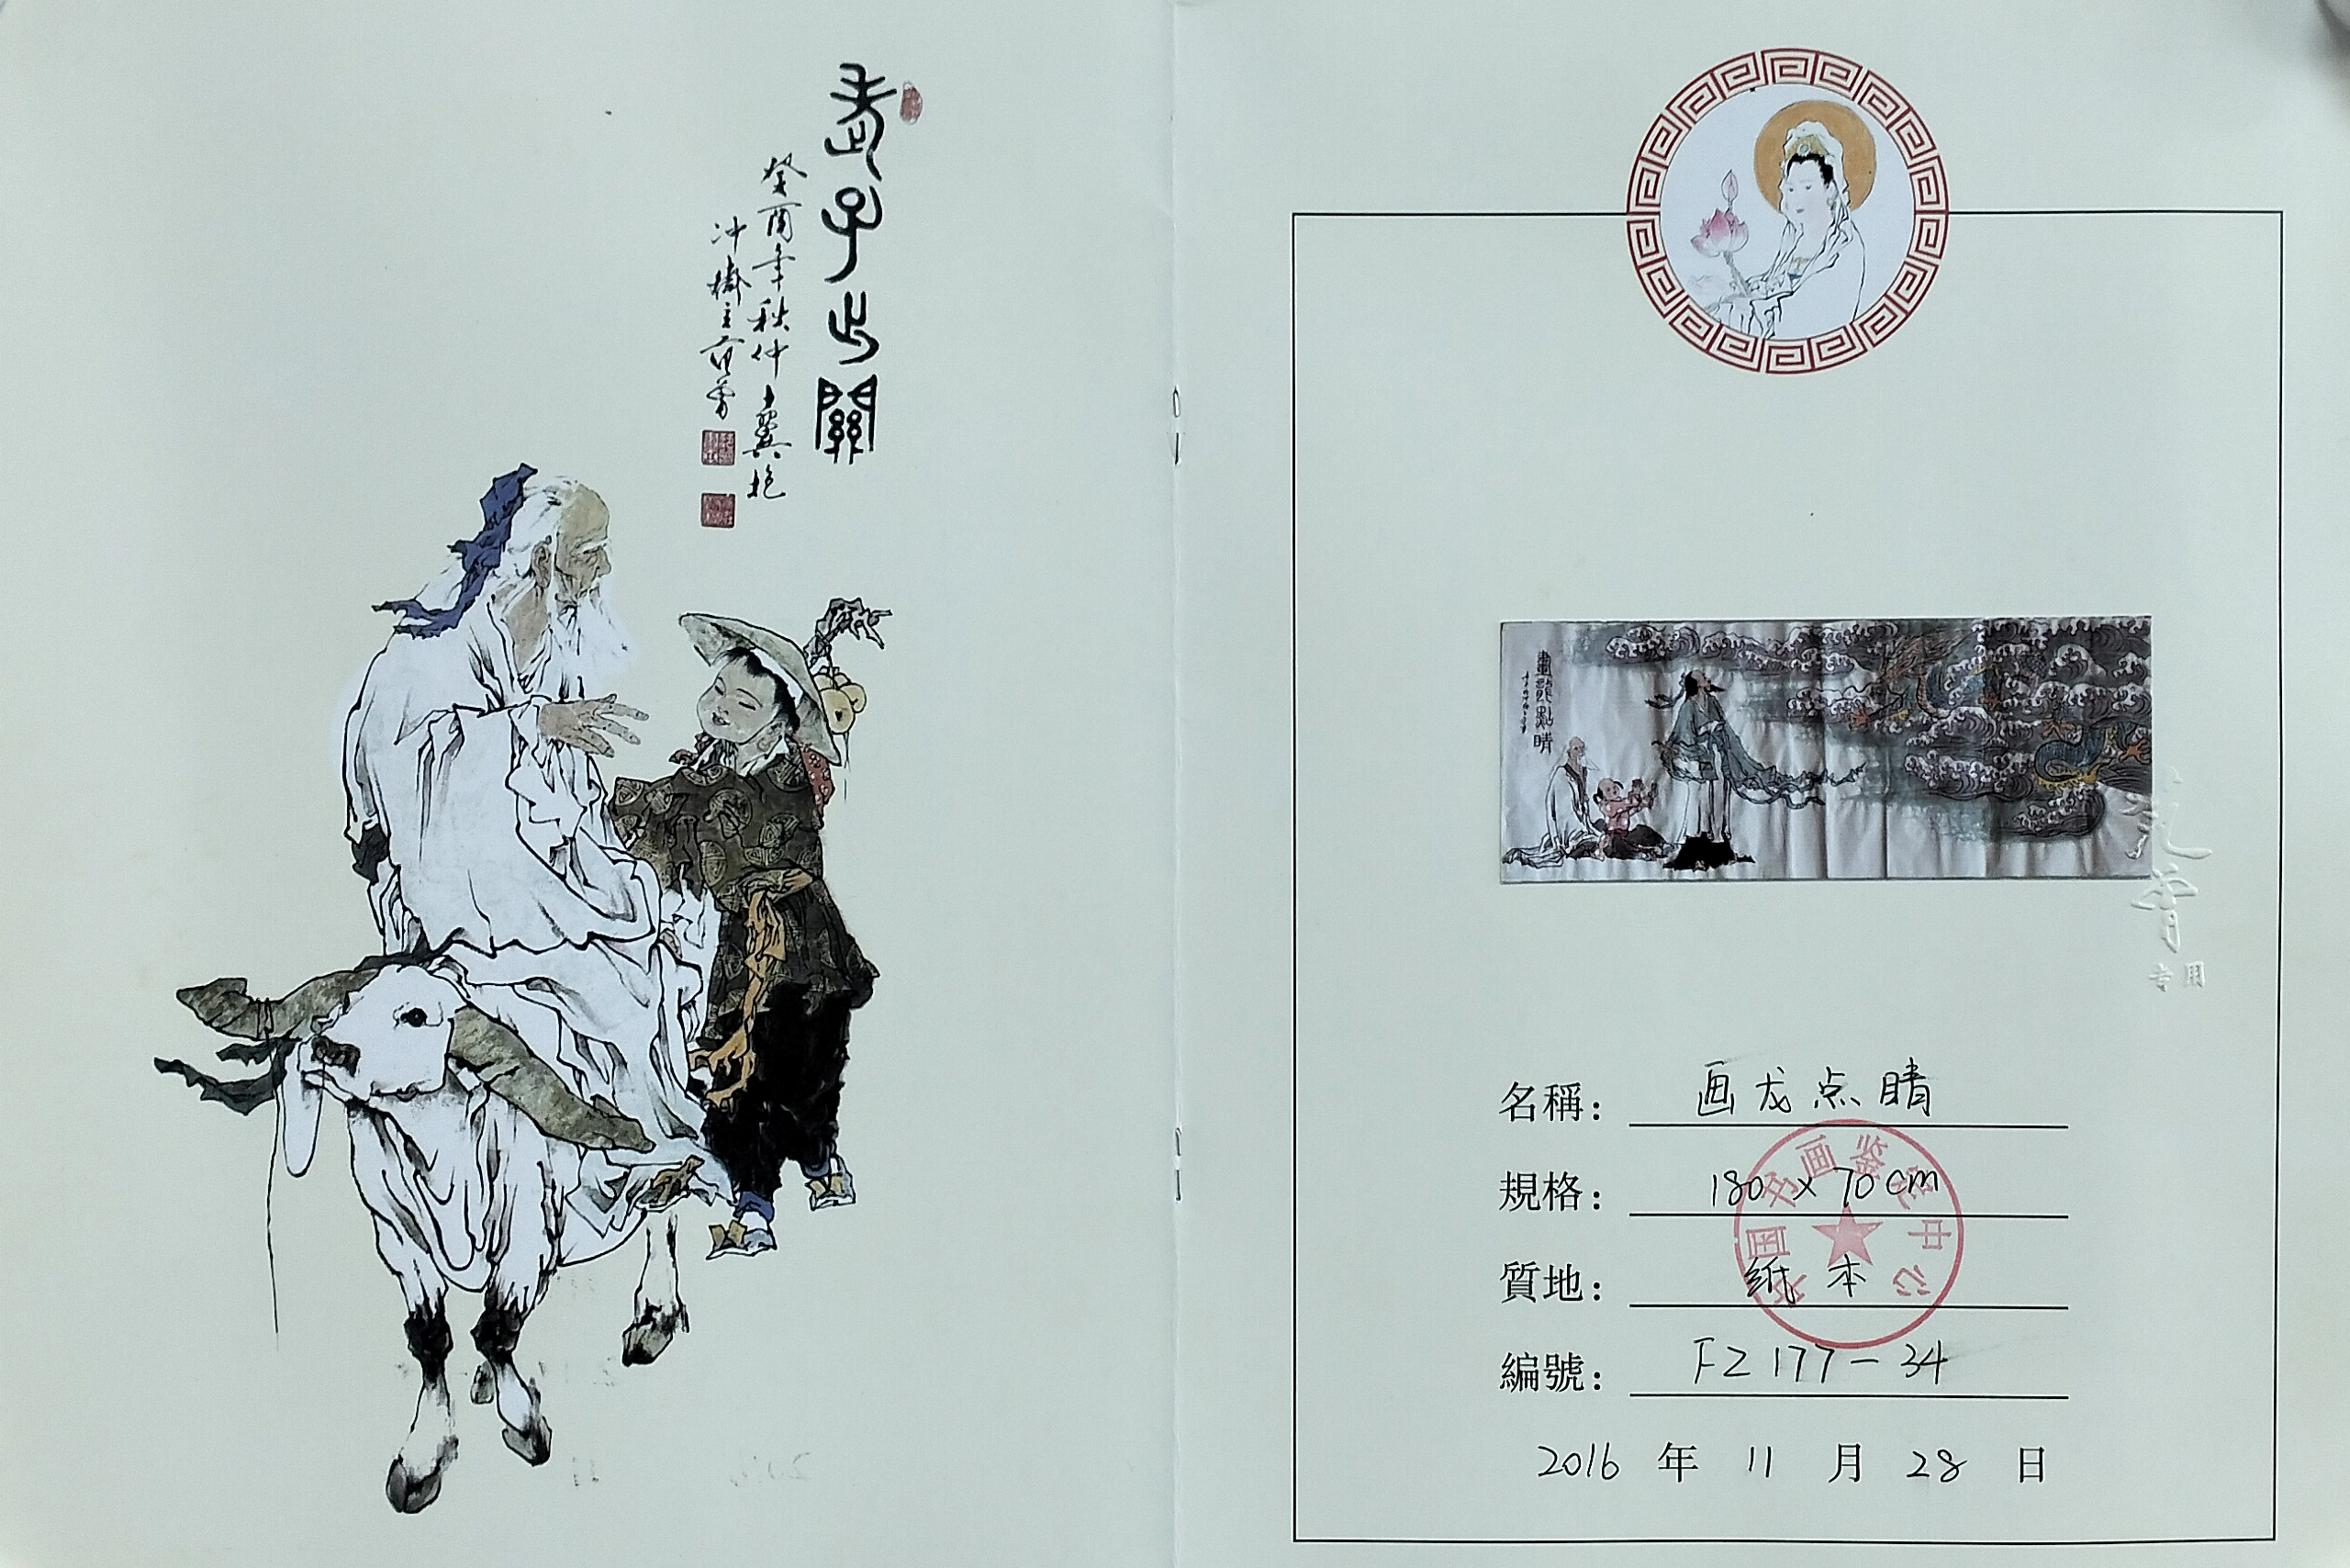 老子出關
癸酉年秋仲十翼抱
冲齋主范曾
畫龍點睛
范曾
专用
名稱：画龙点睛
規格：180×70cm
質地：纸本
編號：FZ177-34
2016年11月28日
中国书画鉴定中心